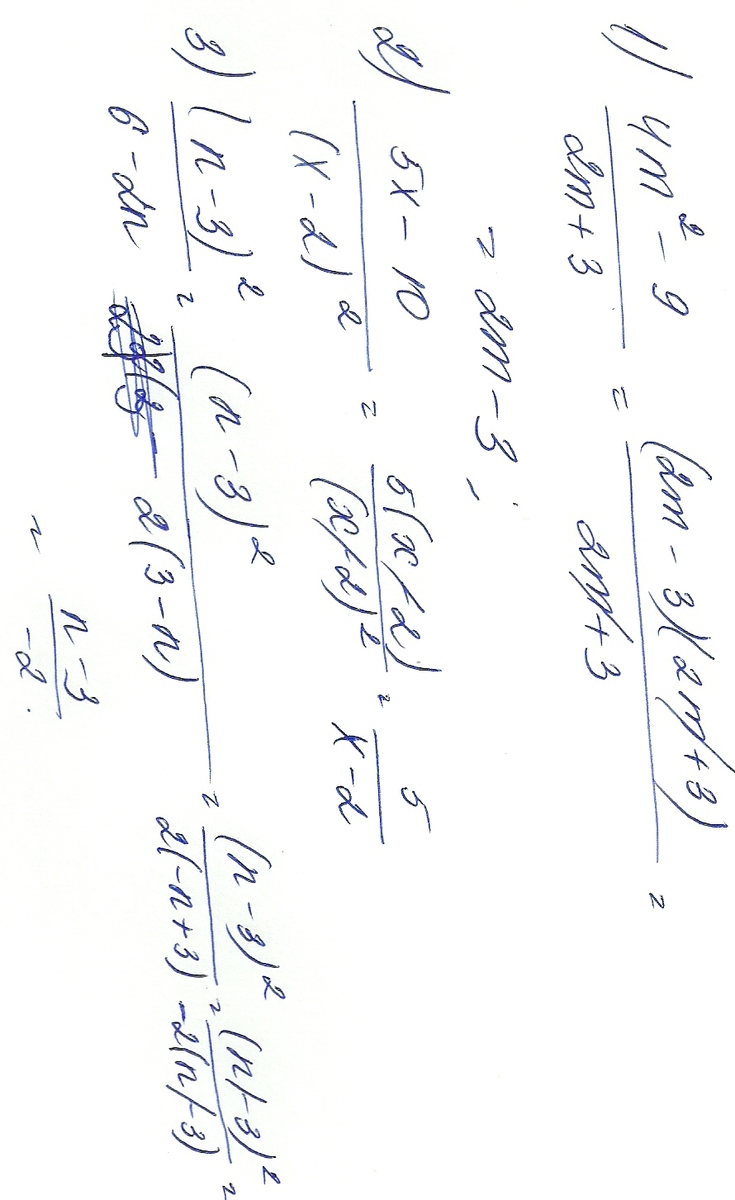 1) (4m² - 9)/(2m + 3) = ((2m - 3)(2m + 3))/(2m + 3) =
= 2m - 3;
2) (5x - 10)/(x - 2)² = (5(x - 2))/(x - 2)² = 5/(x - 2)
3) (n - 3)²/(6 - 2n) = (n - 3)²/(2(3 - n)) = (n - 3)²/(2(-n + 3)) = (n - 3)²/(-2(n - 3)) =
= (n - 3)/(-2).